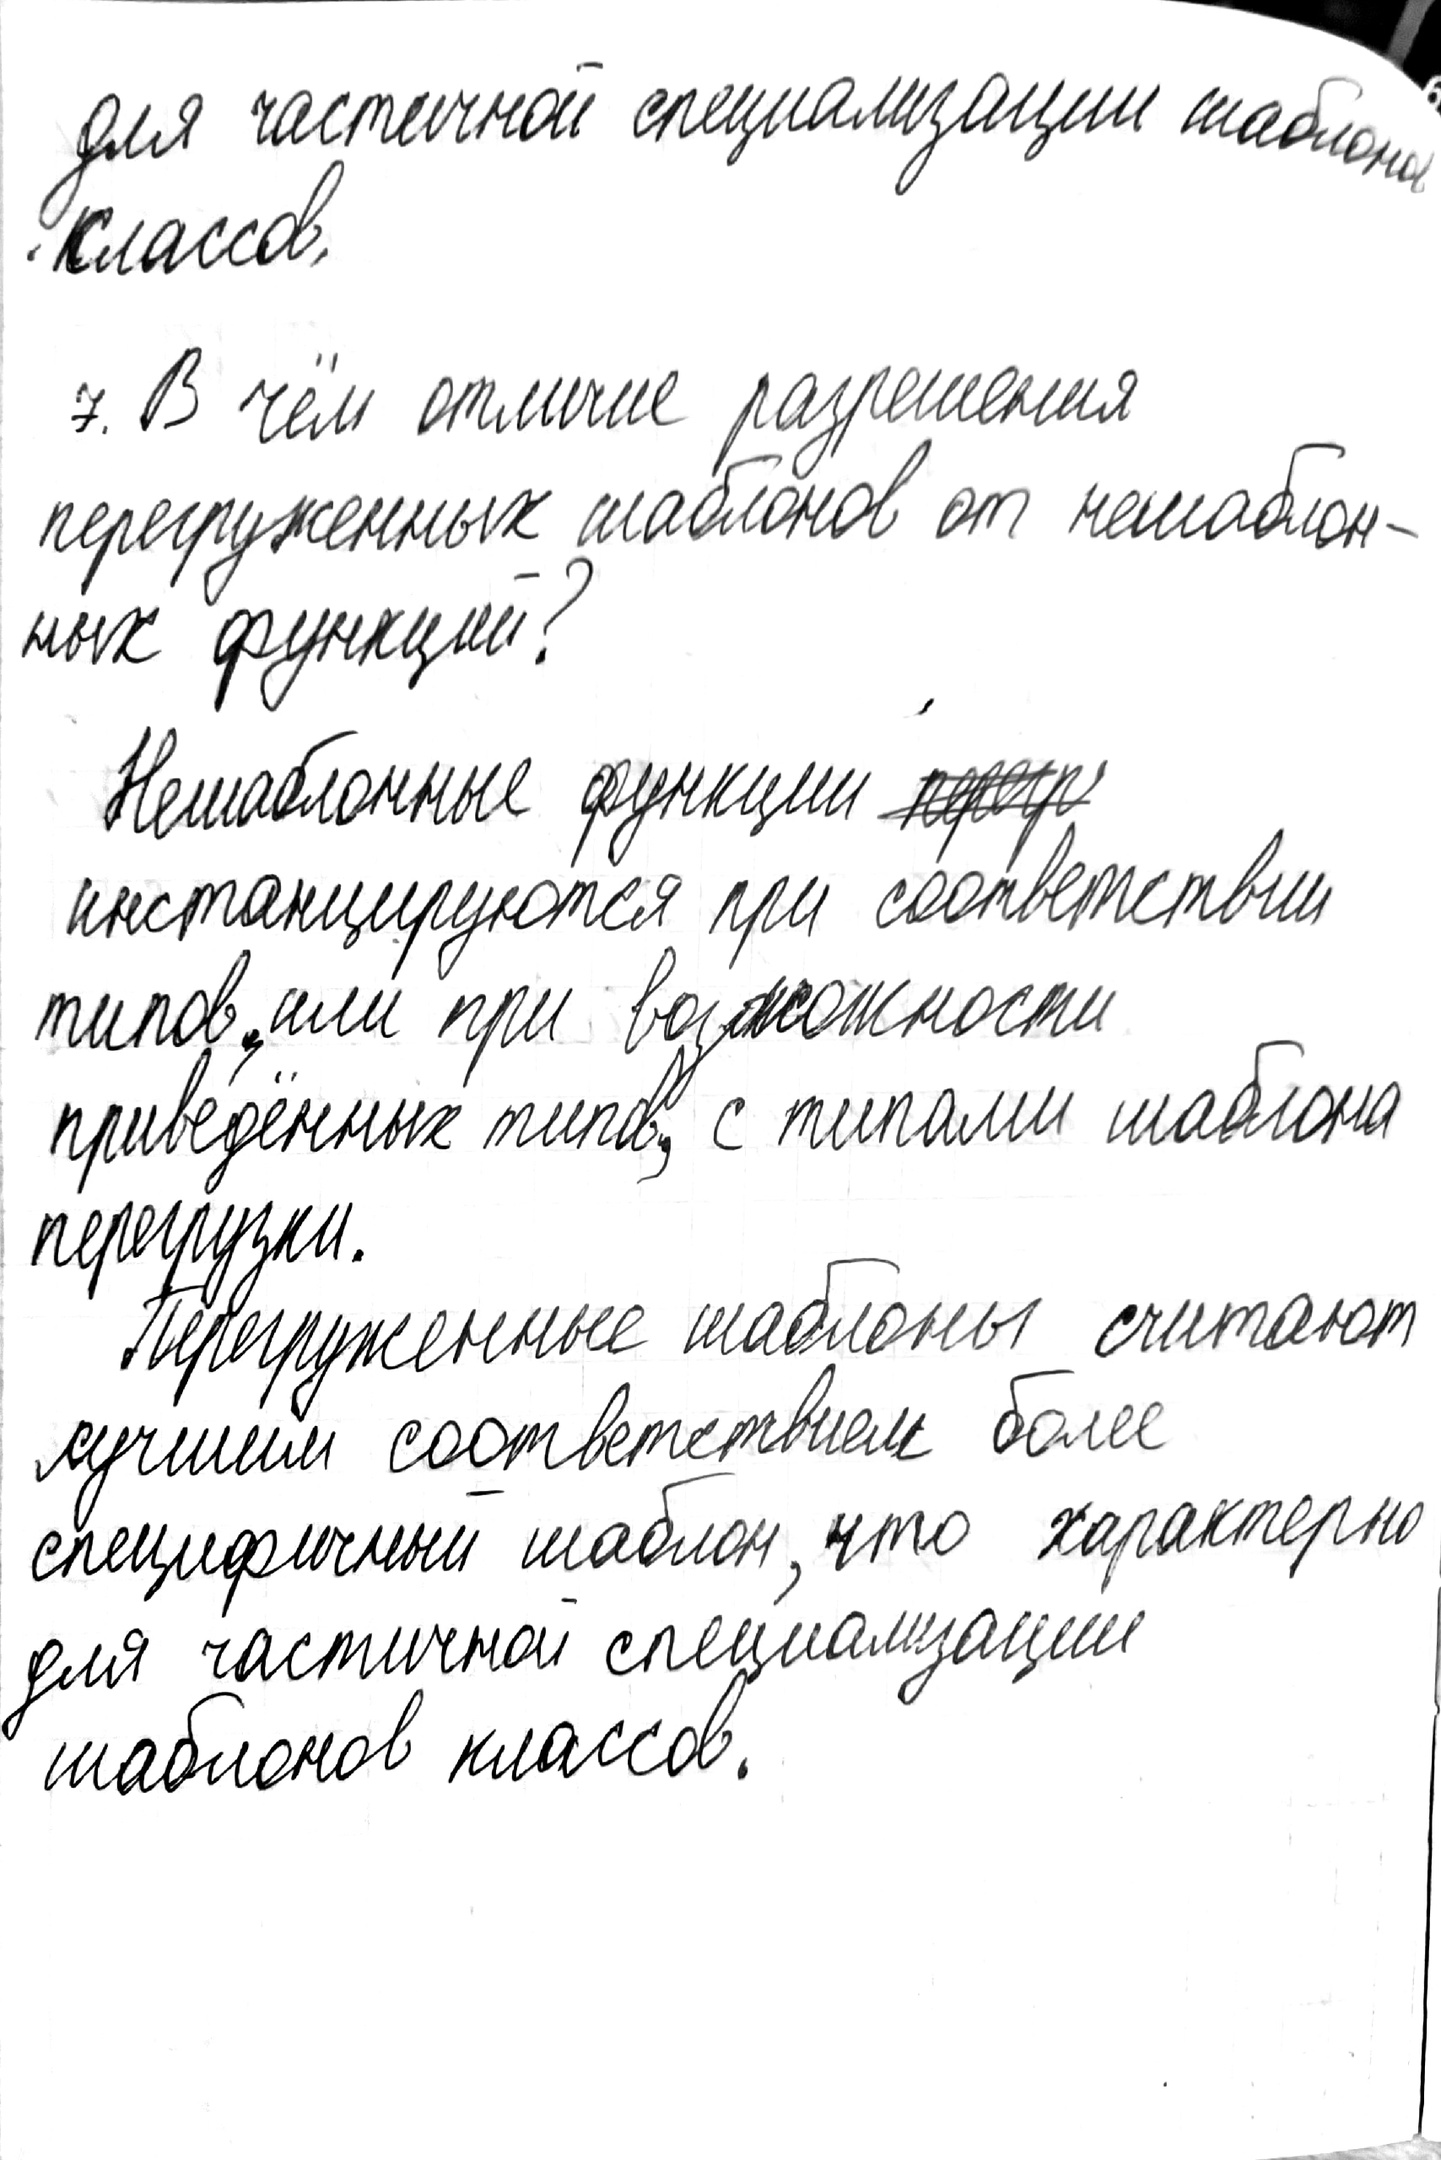 для частичной специализации шаблонов
классов.
7. В чём отличие разрешения
перегруженных шаблонов от нешаблон-
ных функций?
Нешаблонные функции
инстанцируются при соответствии
типов, или при возможности
приведённых типов, с типами шаблона
перегрузки.
Перегруженные шаблоны считают
лучшим соответствием более
специфичный шаблон, что характерно
для частичной специализации
шаблонов классов.